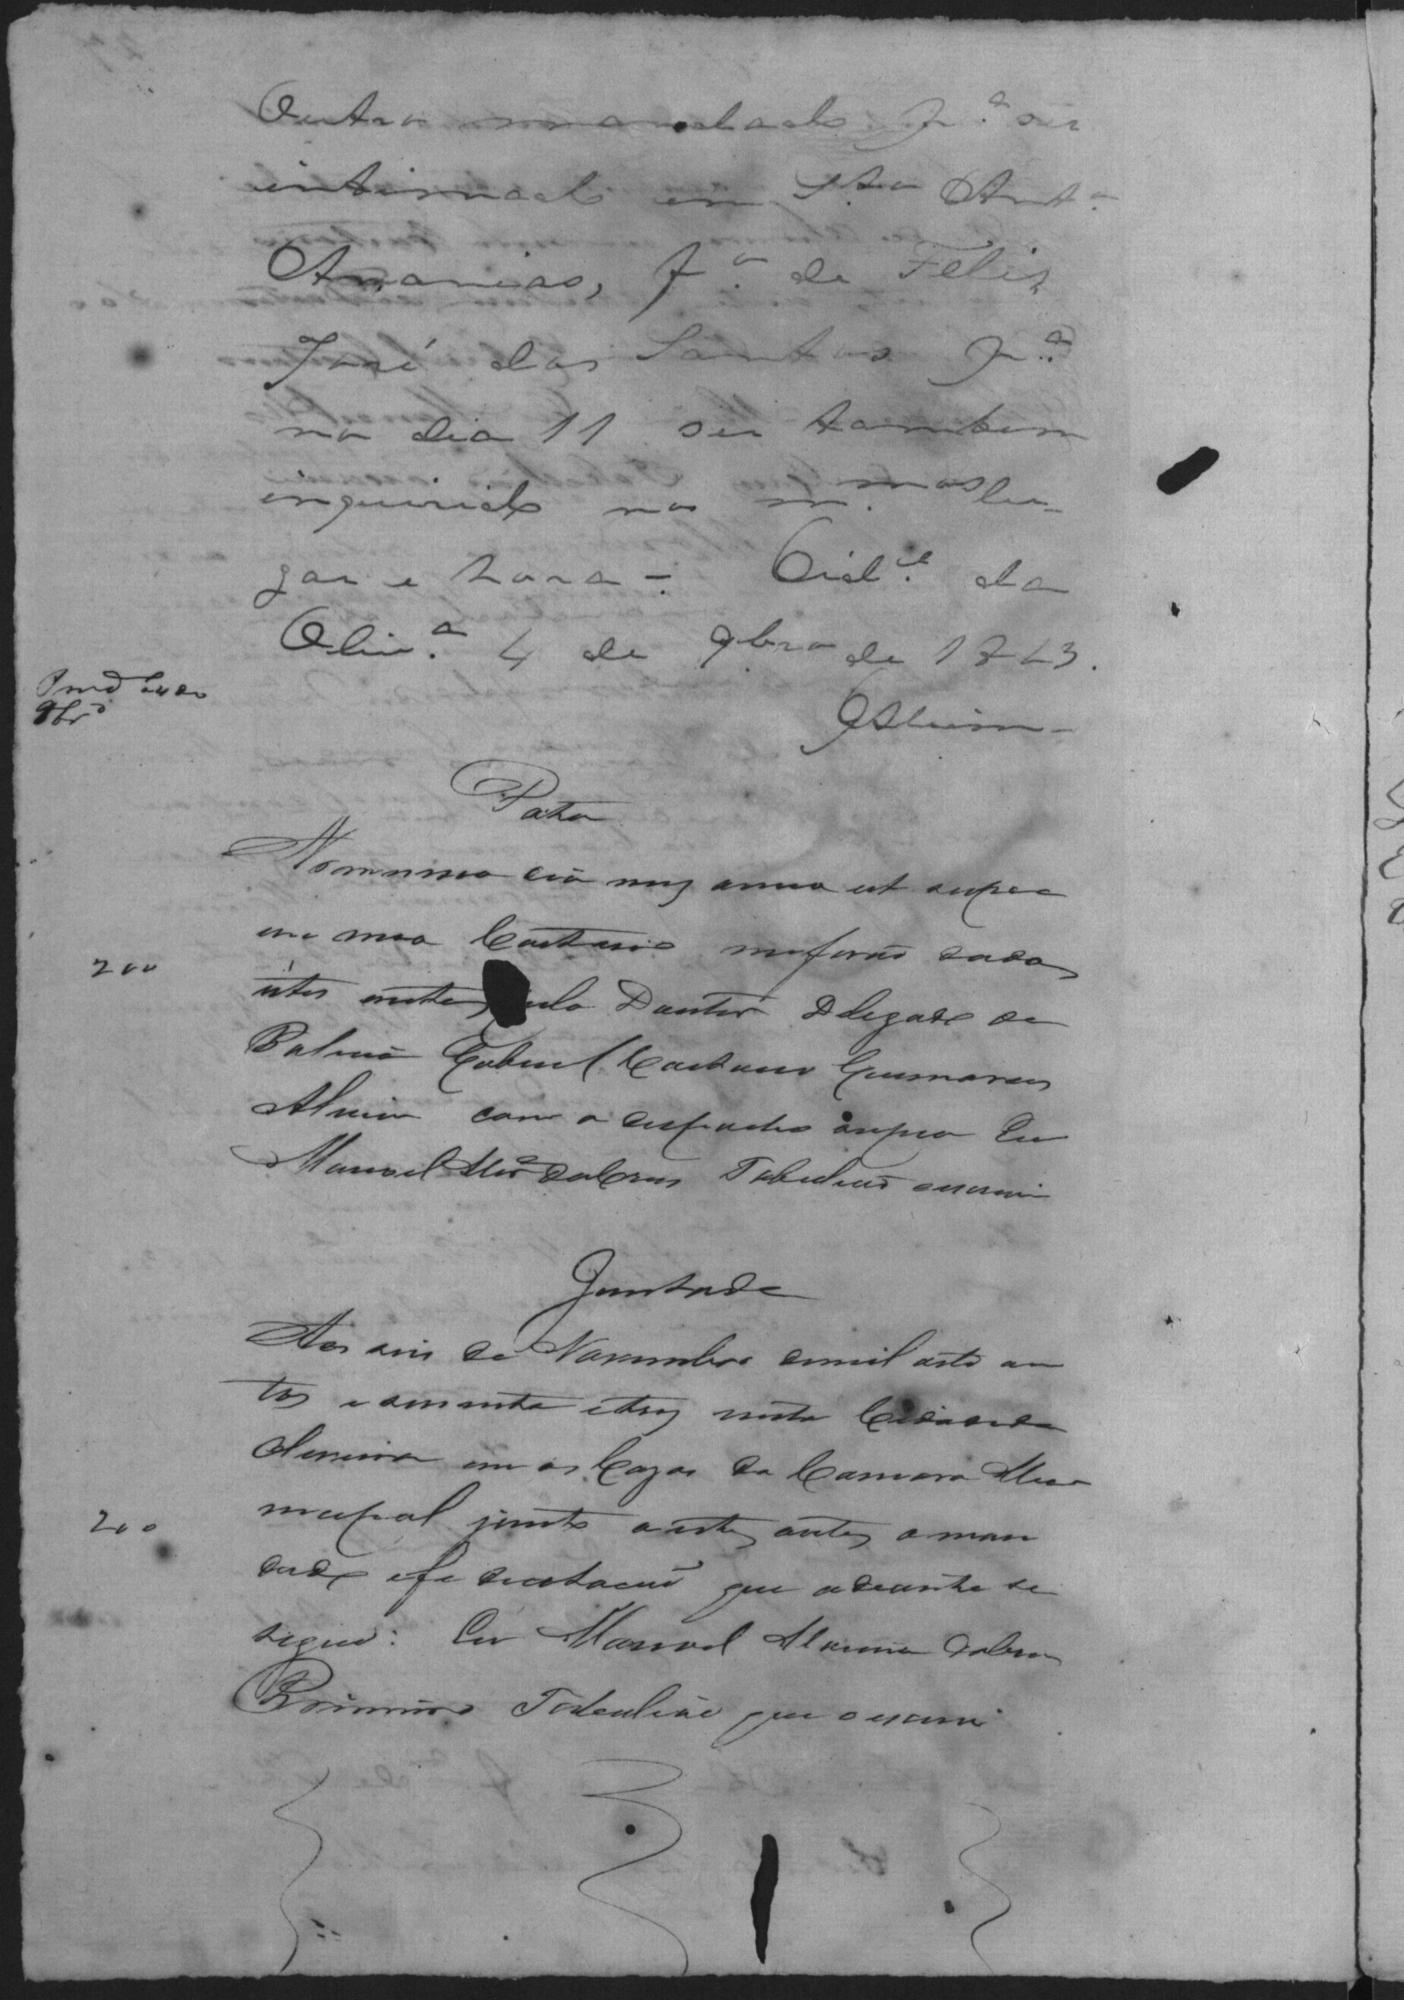 Outro mandado p.ª ser
intimado em S.to Ant.º
Ananias, f.º de Felis
José dos Santos p.ª
no dia 11 ser tambem
inquirido no m.mo lu-
gar e hora-. Cid.e da
Oliv.ª 4 de 9bro de 1843.
Alvim
P md
9br.º
Data
No mesmo dia mez anno ut supra
em meo Cartorio me forão dados
estes autos pelo Doutor Delegado de
Policia Gabriel Caetano Guimarães
Alvim com o despacho supra Eu
Manoel Tabelião escrevi
200
Juntada
Aos seis de Novembro de mil oito cen
tos e quarenta e trez nesta Cidade da
Oliveira em as Cazas da Camara Mu
nicipal junto a estes autos o man
dado e fe de citação que adeante se
segue: Eu Manoel
Primeiro Tabelião que o escrevi
200